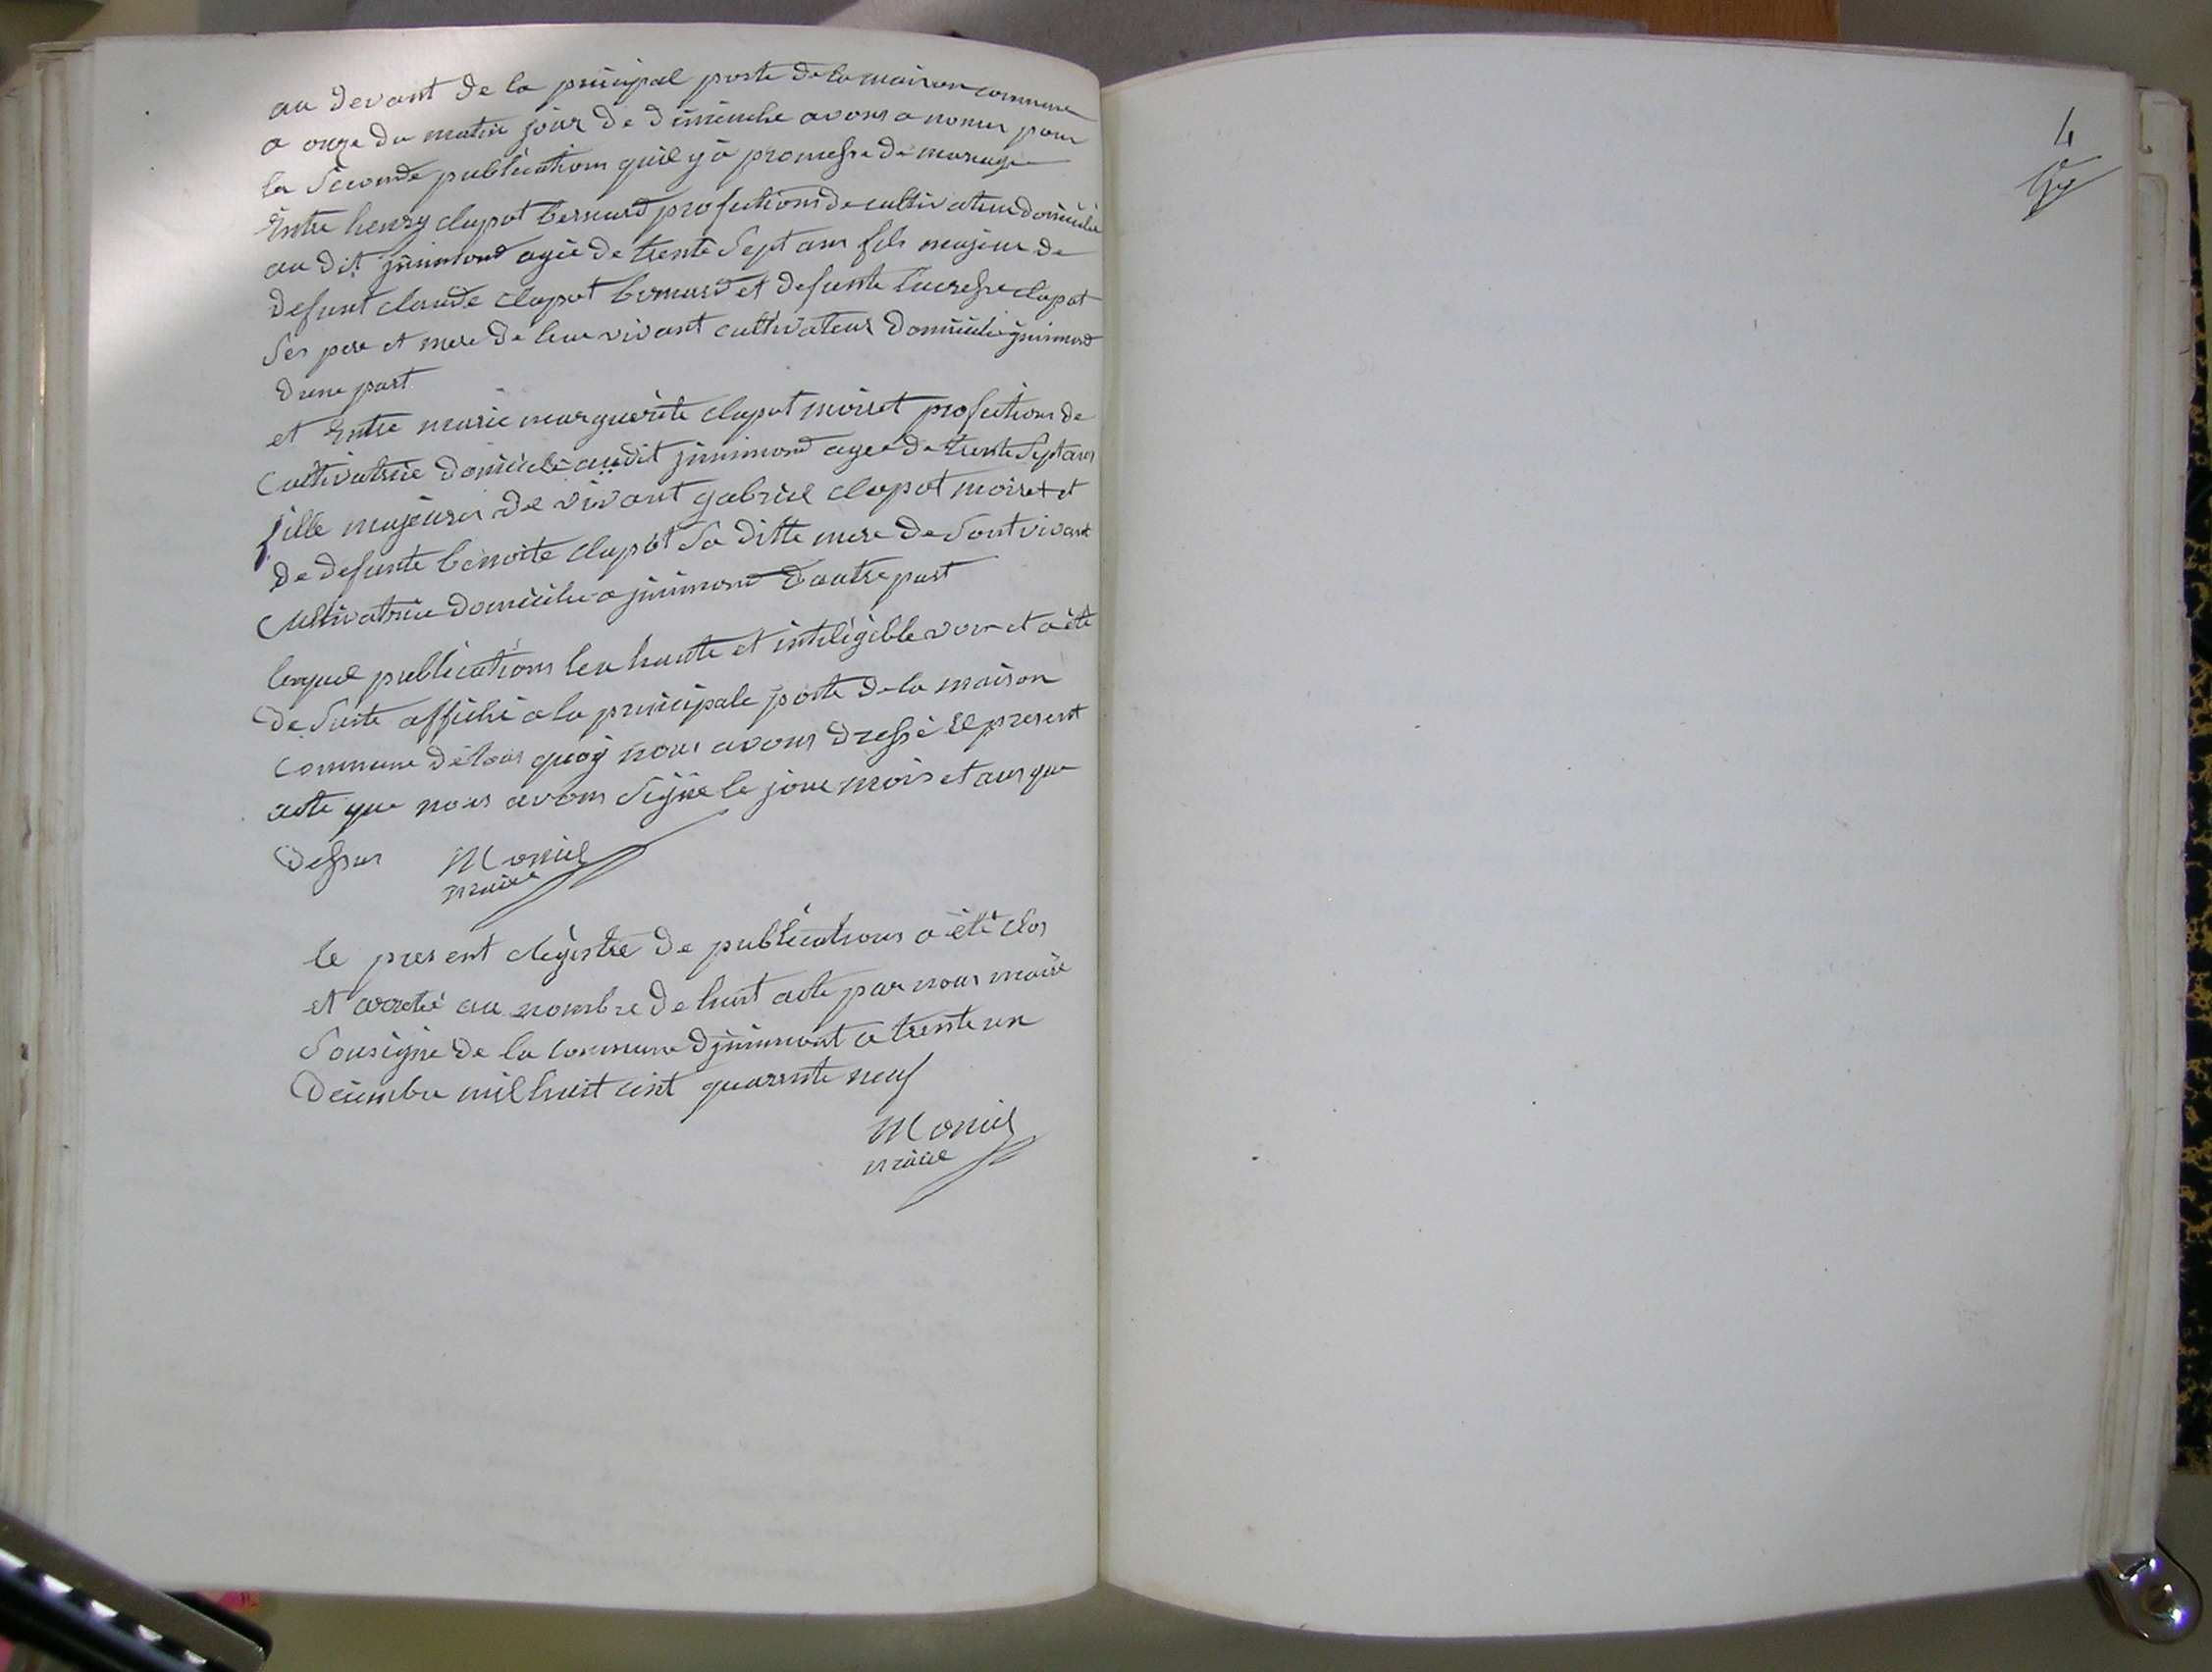 au devant de la principal porte de la maison commune
a onze du matin jour de dimenche avons anoncer pour
la seconde publications quil y a promesse de mariage
Entre henry clapot bernard profections de cultivateur domicilie
au dit jnimond agée de trente sept ans fils majeur de
defunt claude clapot bernard et defunte lucresse clapot
ses pere et mere de leur vivant cultivateur domicilie jnimond
dune part
et Entre marie marguerite clapot moiret profections de
Cultivatrice domicilé audit jnimond agee de trente sept ans
fille majeures de vivant gabriel clapot moiret et
de defunte benoite clapot sa ditte mere de sont vivant
Cultivatrice domicilie a jnimond dautre part
lequel publications leu haute et inteligible voix et a été
de suite affiché a la principale porte de la maison
Commune de tous quoy nous avons dressé le present
acte que nous avons signé le jour mois et ans que
dessus
maire
le present registre de publications a été clos
et arreté au nombre de huit acte par nous maire
sousigne de la commune djnimont a trente un
decembre mil huit cent quarente neuf
maire
4